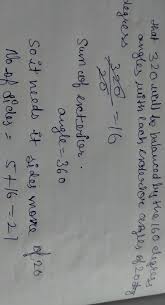 that 320 will be balanced by the 160 degrees
angles with each exterior angles of 20 deg
degrees
320/20 = 16
Sum of exterior
angle = 360
So it needs 16 sides more of 20
No of sides = 5 + 16 = 21